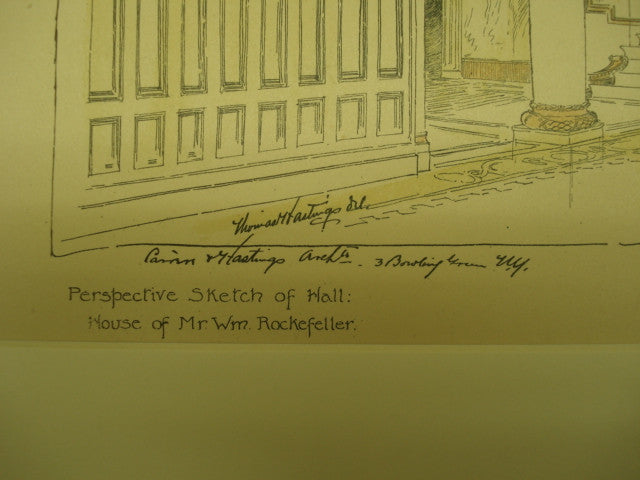 Thomas Hastings del.
Carrère & Hastings Archts. 3 Bowling Green N.Y.
Perspective Sketch of Hall:
House of Mr Wm. Rockefeller.